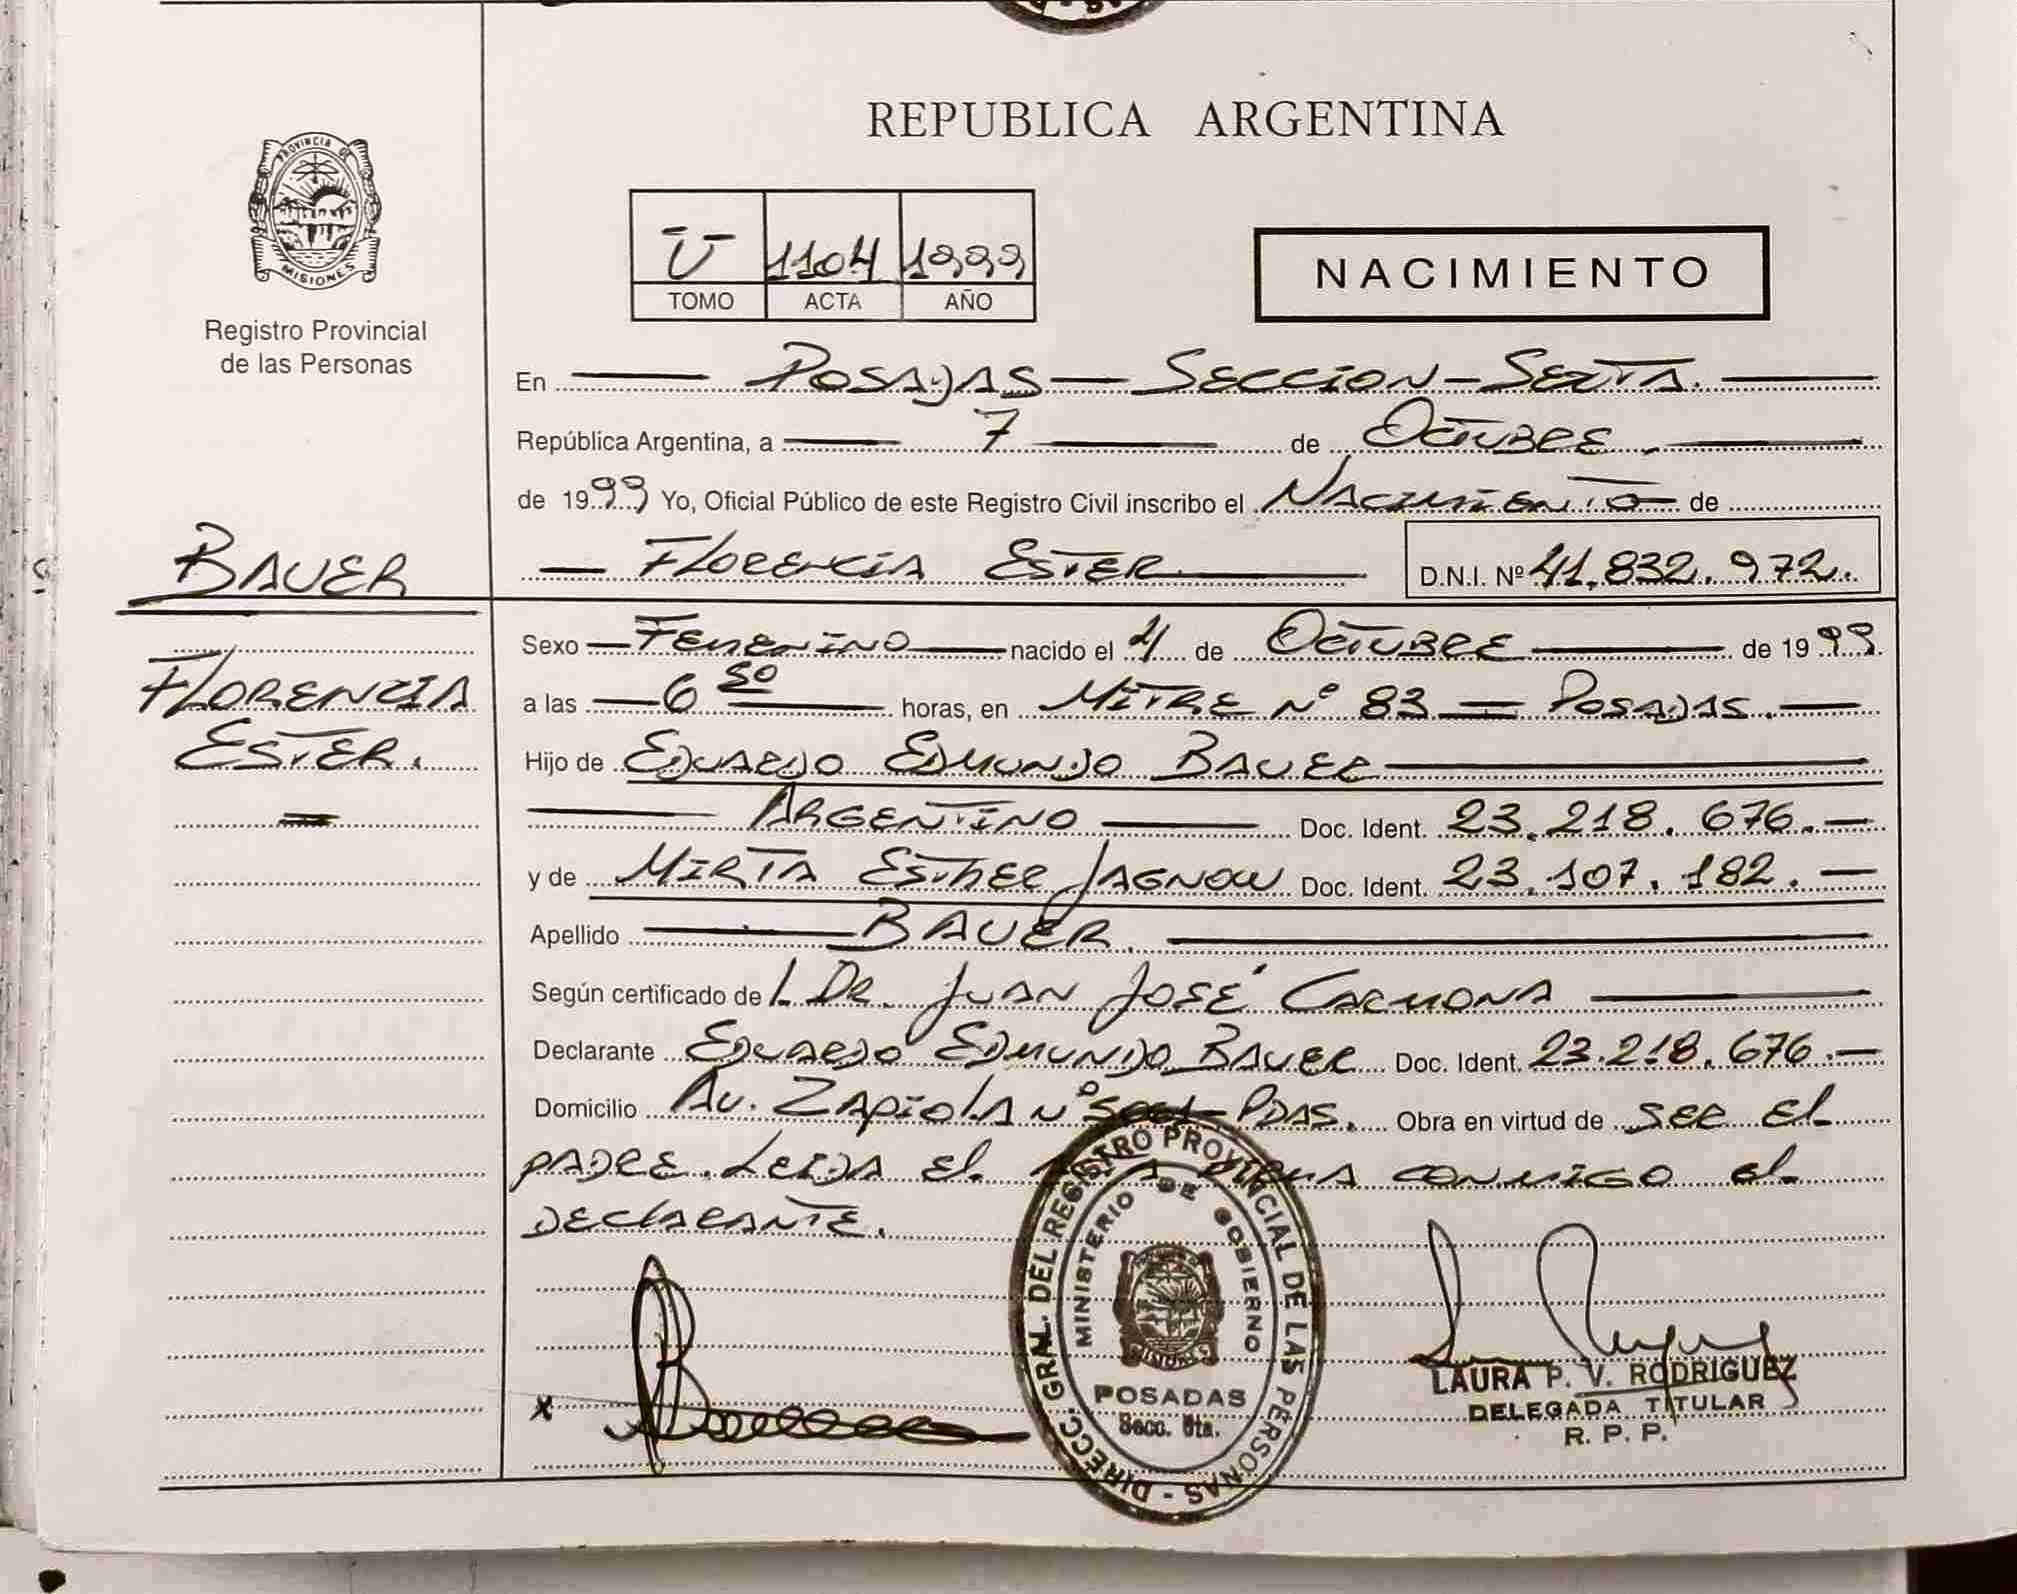 REPUBLICA ARGENTINA
PROVINCIA DE
MISIONES
Registro Provincial
de las Personas
Ū 1104 1999
TOMO ACTA AÑO
NACIMIENTO
En Posadas - Seccion - Sexta.
República Argentina, a 7 de Octubre
de 1999 Yo, Oficial Público de este Registro Civil inscribo el Nacimiento de
BAUER
Florencia Ester D.N.I. Nº 41.832.972.
Sexo Femenino nacido el 4 de Octubre de 1999
FLORENCIA
a las 6 horas, en Mitre Nº 83 = Posadas.
ESTER.
Hijo de Eduardo Edmundo Bauer
Argentino Doc. Ident. 23.218.676.-
y de Mirta Esther Jagnow Doc. Ident. 23.107.182.-
Apellido BAUER.
Según certificado de l. Dr. Juan José Carmona
Declarante Eduardo Edmundo Bauer Doc. Ident. 23.218.676.-
Domicilio Av. Zapiola Nº Pdas. Obra en virtud de ser el
padre. Leida el firma conmigo el
declarante.
x
DIRECC. GRAL. DEL REGISTRO PROVINCIAL DE LAS PERSONAS -
MINISTERIO DE GOBIERNO
MISIONES
POSADAS
Secc. 6ta.
LAURA P. V. RODRIGUEZ
DELEGADA TITULAR
R. P. P.